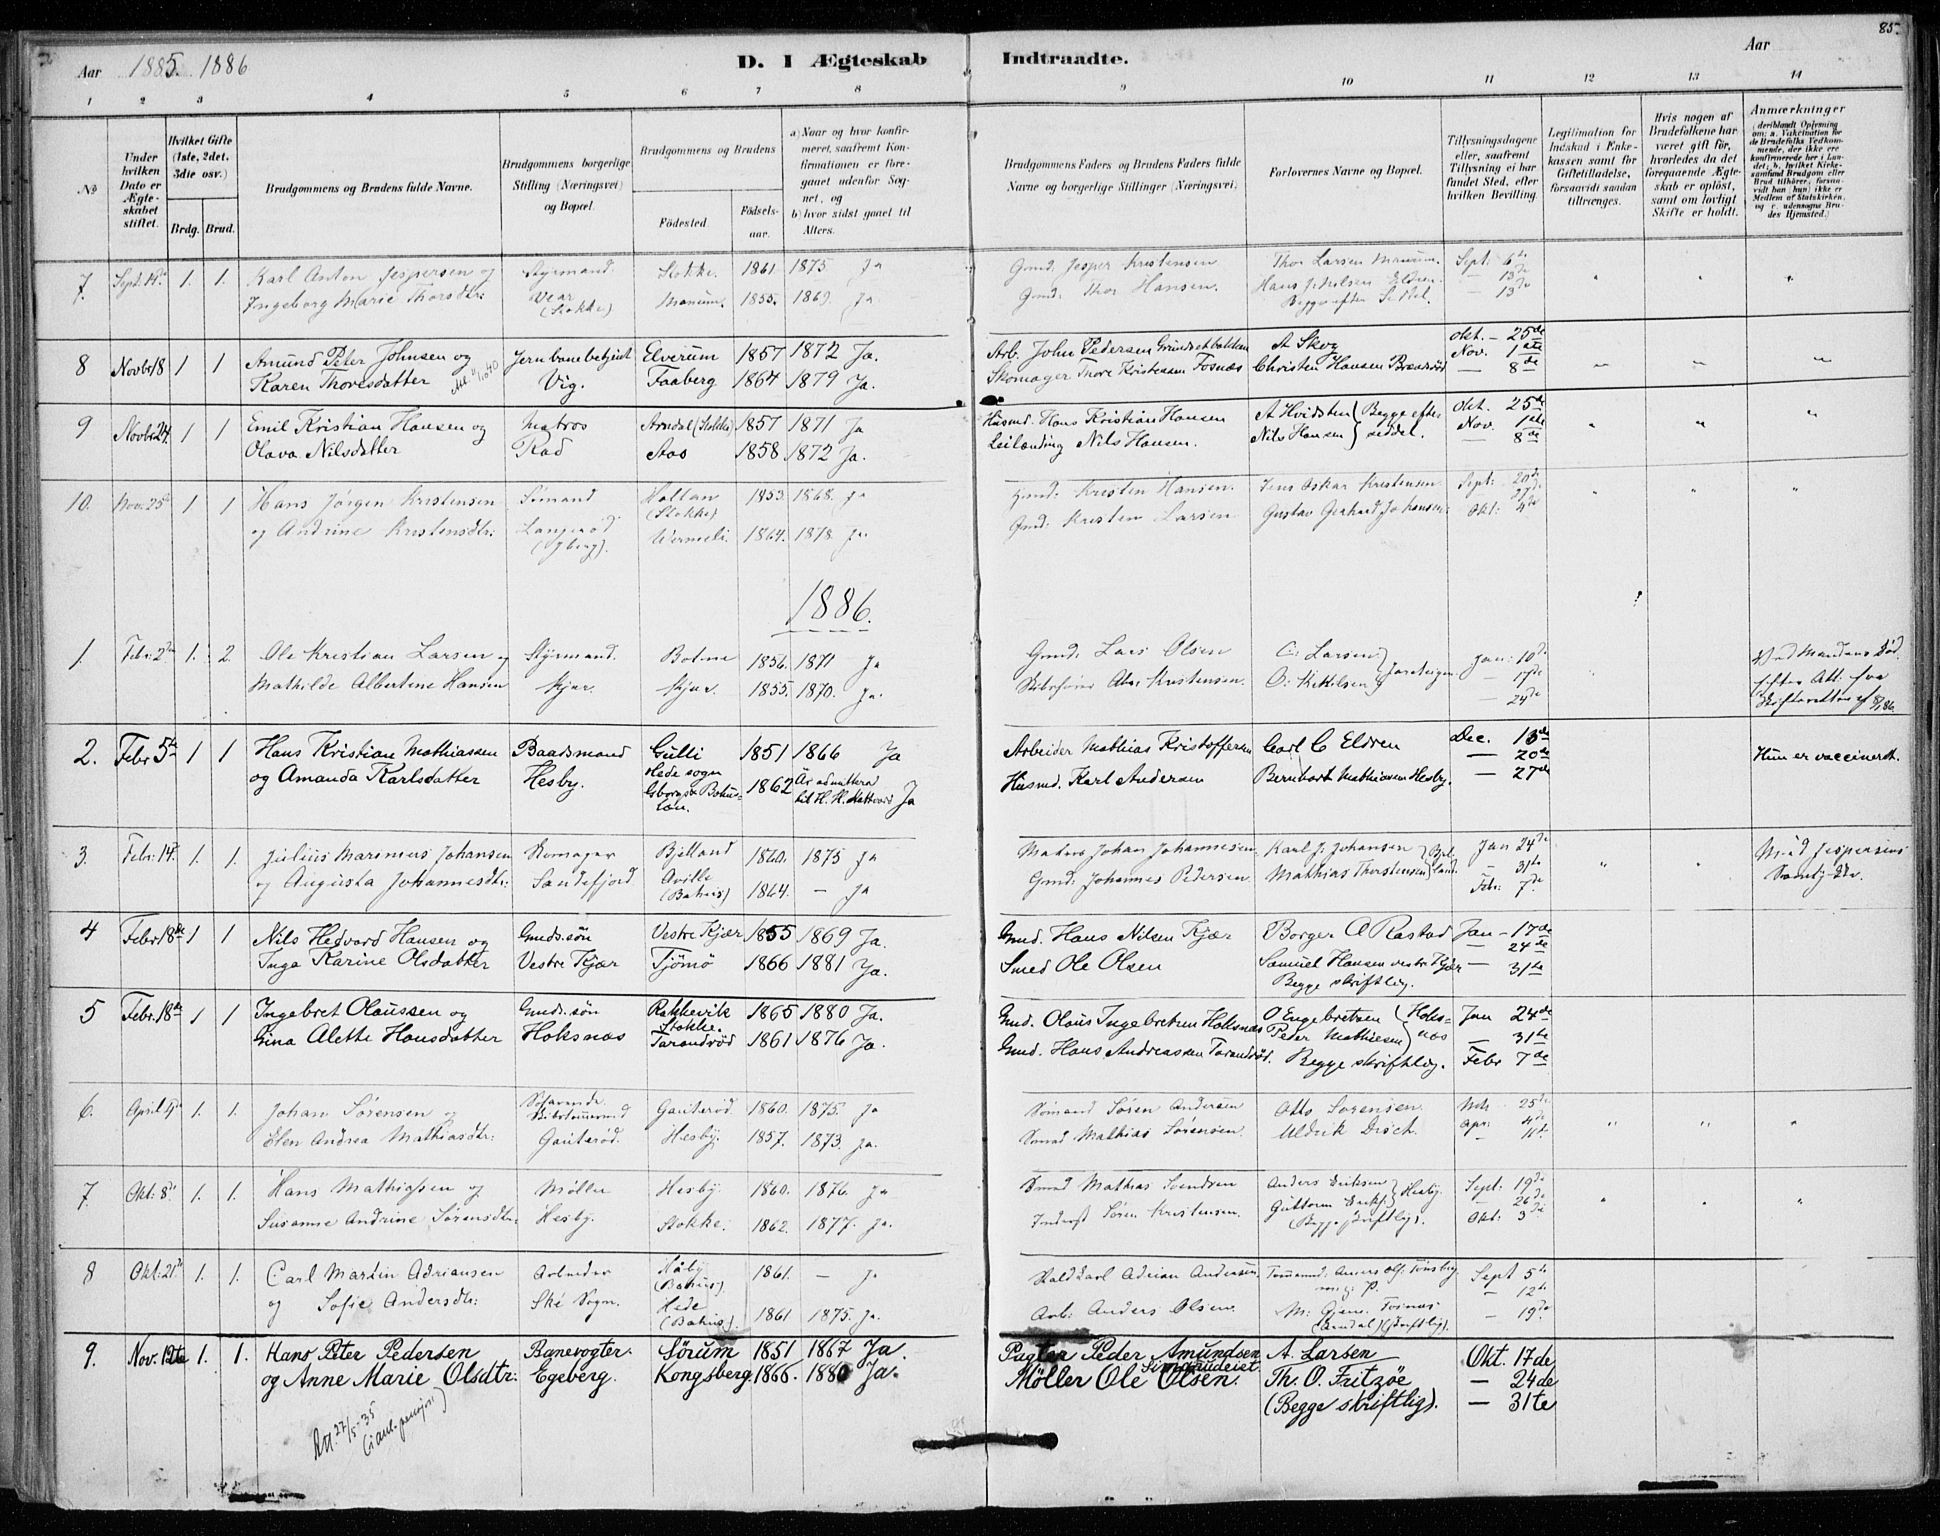 85.
Aar 1885. 1886
D. I Ægteskab Indtraadte.
Aar
1 2 3 4 5 6 7 8 9 10 11 12 13 14
No
Under hvilken Dato er Ægteskabet stiftet.
Hvilket Gifte (1ste, 2det, 3die osv.)
Brdg. Brud.
Brudgommens og Brudens fulde Navne.
Brudgommens borgerlige Stilling (Næringsvei) og Bopæl.
Brudgommens og Brudens
Fødested.
Fødselsaar.
a) Naar og hvor konfirmeret, saafremt Konfirmationen er foregaaet udenfor Sognet, og
b) hvor sidst gaaet til Alters.
Brudgommens Faders og Brudens Faders fulde Navne og borgerlige Stillinger (Næringsvei).
Forlovernes Navne og Bopæl.
Tillysningsdagene eller, saafremt Tillysning ei har fundet Sted, efter hvilken Bevilling.
Legitimation for Indskud i Enkekassen samt for Giftetilladelse, forsaavidt saadan tiltrænges.
Hvis nogen af Brudefolkene har været gift før, hvorledes da det foregaaende Ægteskab er opløst, samt om lovligt Skifte er holdt.
Anmærkninger
(deriblandt Oplysning om: a. Vakcination for de Brudefolks Vedkommende, der ikke ere konfirmerede her i Landet; b. hvilket Kirkesamfund Brudgom eller Brud tilhører, forsaavidt han (hun) ikke er Medlem af Statskirken, og c. udensogns Brudes Hjemsted.)
7. Sept. 19de 1. 1. Karl Anton Jespersen og Styrmand. Stokke. 1861 1875 Ja Gmd. Jesper Kristensen Thor Larsen Sept: 6te
Ingeborg Marie Thorsdtr: Vear (Stokke) Manum. 1855. 1869. Ja Gmd: Thor Hansen. Hans J. Nilsen — 13de
Begge efter Seddel.
8 Novbr 18 1 1 Amund Peter Johnsen og Jernbanebetjent Elverum 1857 1872 Ja. Arb. John Pedersen Grundsetbakken A Skog Okt. – 25de
Karen Thoresdatter Vig. Faaberg 1864 1879 Ja. Skomager Thore Kristensen Fosnæs Christen Hansen Nov. 1ste
— 8de
9 Novbr 24 1 1 Emil Kristian Hansen og Matros Arndal (Stokke) 1857 1871 Ja Husmd. Hans Kristian Hansen A Hvidsten Begge efter Okt. 25de
Olava Nilsdatter Rød Aas 1858 1872 Ja. Leilænding Nils Hansen. Nils Hansen seddel. Nov. 1ste
— 8de
10. Nov: 25de 1 1 Hans Jörgen Kristensen Sömand Holtan (Stokke) 1853. 1868. Ja Gmd: Kristen Hansen. Jens Oskar Kristensen Sept: 20de
og Andrine Kristensdtr: 1864. 1878. Ja. Gmd: Kristen Larsen Gustav Gerhard Johansen 27de
Okt: 4de
1886.
1. Febr: 2den 1. 2. Ole Kristian Larsen og Styrmand. Botne 1856. 1871 Ja Gmd: Lars Olsen C: Larsen Jan: 10de
Mathilde Albertine Hansen Kjær. Kjær. 1855. 1870. Ja. Kristensen. O: Kittilsen 17de
— 24de
Ved Mandens Död.
2. Febr 5te 1 1 Hans Kristian Mathiassen Baadsmand Gulli 1851 1866 Ja Arbeider Mathias Kristoffersen Carl C Eldren Dec. 13de
og Amanda Karlsdatter Hesby. Hede sogn 1862 Är admittera Ja Husmd. Karl Andersen Bernhart Mathiasen Hesby. — 20de
til H. H. Nattvard — 27de
Hun er vaccineret.
3. Febr: 14. 1. 1. Julius Marinius Johansen Skomager Bjelland 1860. 1875 Ja Matros Johan Johannesen. Karl J. Johansen Jan 24de
og Augusta Johannesdtr: Sandefjord (Bahus) 1864. — Ja Gmd: Johannes Pedersen Mathias Thorstensen 31te
Febr: 7de
4 Febr 18de 1 1 Nils Hedvard Hansen og Gmds. søn Vestre Kjær 1855 1869 Ja. Gmd. Hans Nilsen Kjær Borger A Rastad Jan – 17de
Inga Karine Olsdatter Vestre Kjær Tjömö 1866 1881 Ja. Smed Ole Olsen Samuel Hansen vestre Kjær — 24de
Begge skriftlig. 31te
5 Febr. 18de 1 1 Ingebret Olaussen og Gmds. søn Rakkevik Stokke. 1865 1880 Ja. Gmd. Olaus Ingebretsen Hoksnæs O Engebretsen Hoksnæs Jan 24de
Gina Alette Hansdatter Hoksnæs Tarandrød 1861 1876 Ja. Gmd. Hans Andreassen Tarandrød. Peder Mathiesen — 31te
Begge skriftlig. Febr 7de
6. April 1. 1. Johan Sörensen og Gauterød. 1860. 1875. Ja Sömand Sören Andersen Otto Sorensen. 25de
Elen Andrea Mathiasdtr: Gauterød. Hesby. 1857. 1873. Ja. Mathias Sörensen. Uldrik Disch. Apr: 4de
11te
7. Okt: 8de 1. 1. Hans Mathiassen og Møller Hesby. 1860. 1876. Ja Mathias Svendsen Anders Eriksen Hesby. Sept: 19de
Susanne Andrine Sörensdtr: Hesby. Stokke. 1862. 1877. Ja. Inderst Sören Kristensen. Guttorm — 26de
(Begge skriftlig). Okt: 3die
8 Okt: 21de 1. 1. Carl Martin Adriansen Arbeider (Bahus) 1861. — Ja Adrian Andersen. Sept 5te
og Sofie Andersdtr: Ske Sogn. Hede (Bahus). 1861 1875. Ja. Arb: Anders Olsen. — 12te
(Skriftlig). — 19de
9. Nov. 12te 1. 1. Hans Peter Pedersen Banevogter. Sörum 1851 1867 Ja. Peder Amundsen A. Larsen Okt. 17de
og Anne Marie Olsdtr: Egeberg. Kongsberg. 1866. 1880 Ja. Møller Ole Olsen. Th. O. Fritzöe — 24de
(Begge skriftlig). — 31te
Att. 27/5-35